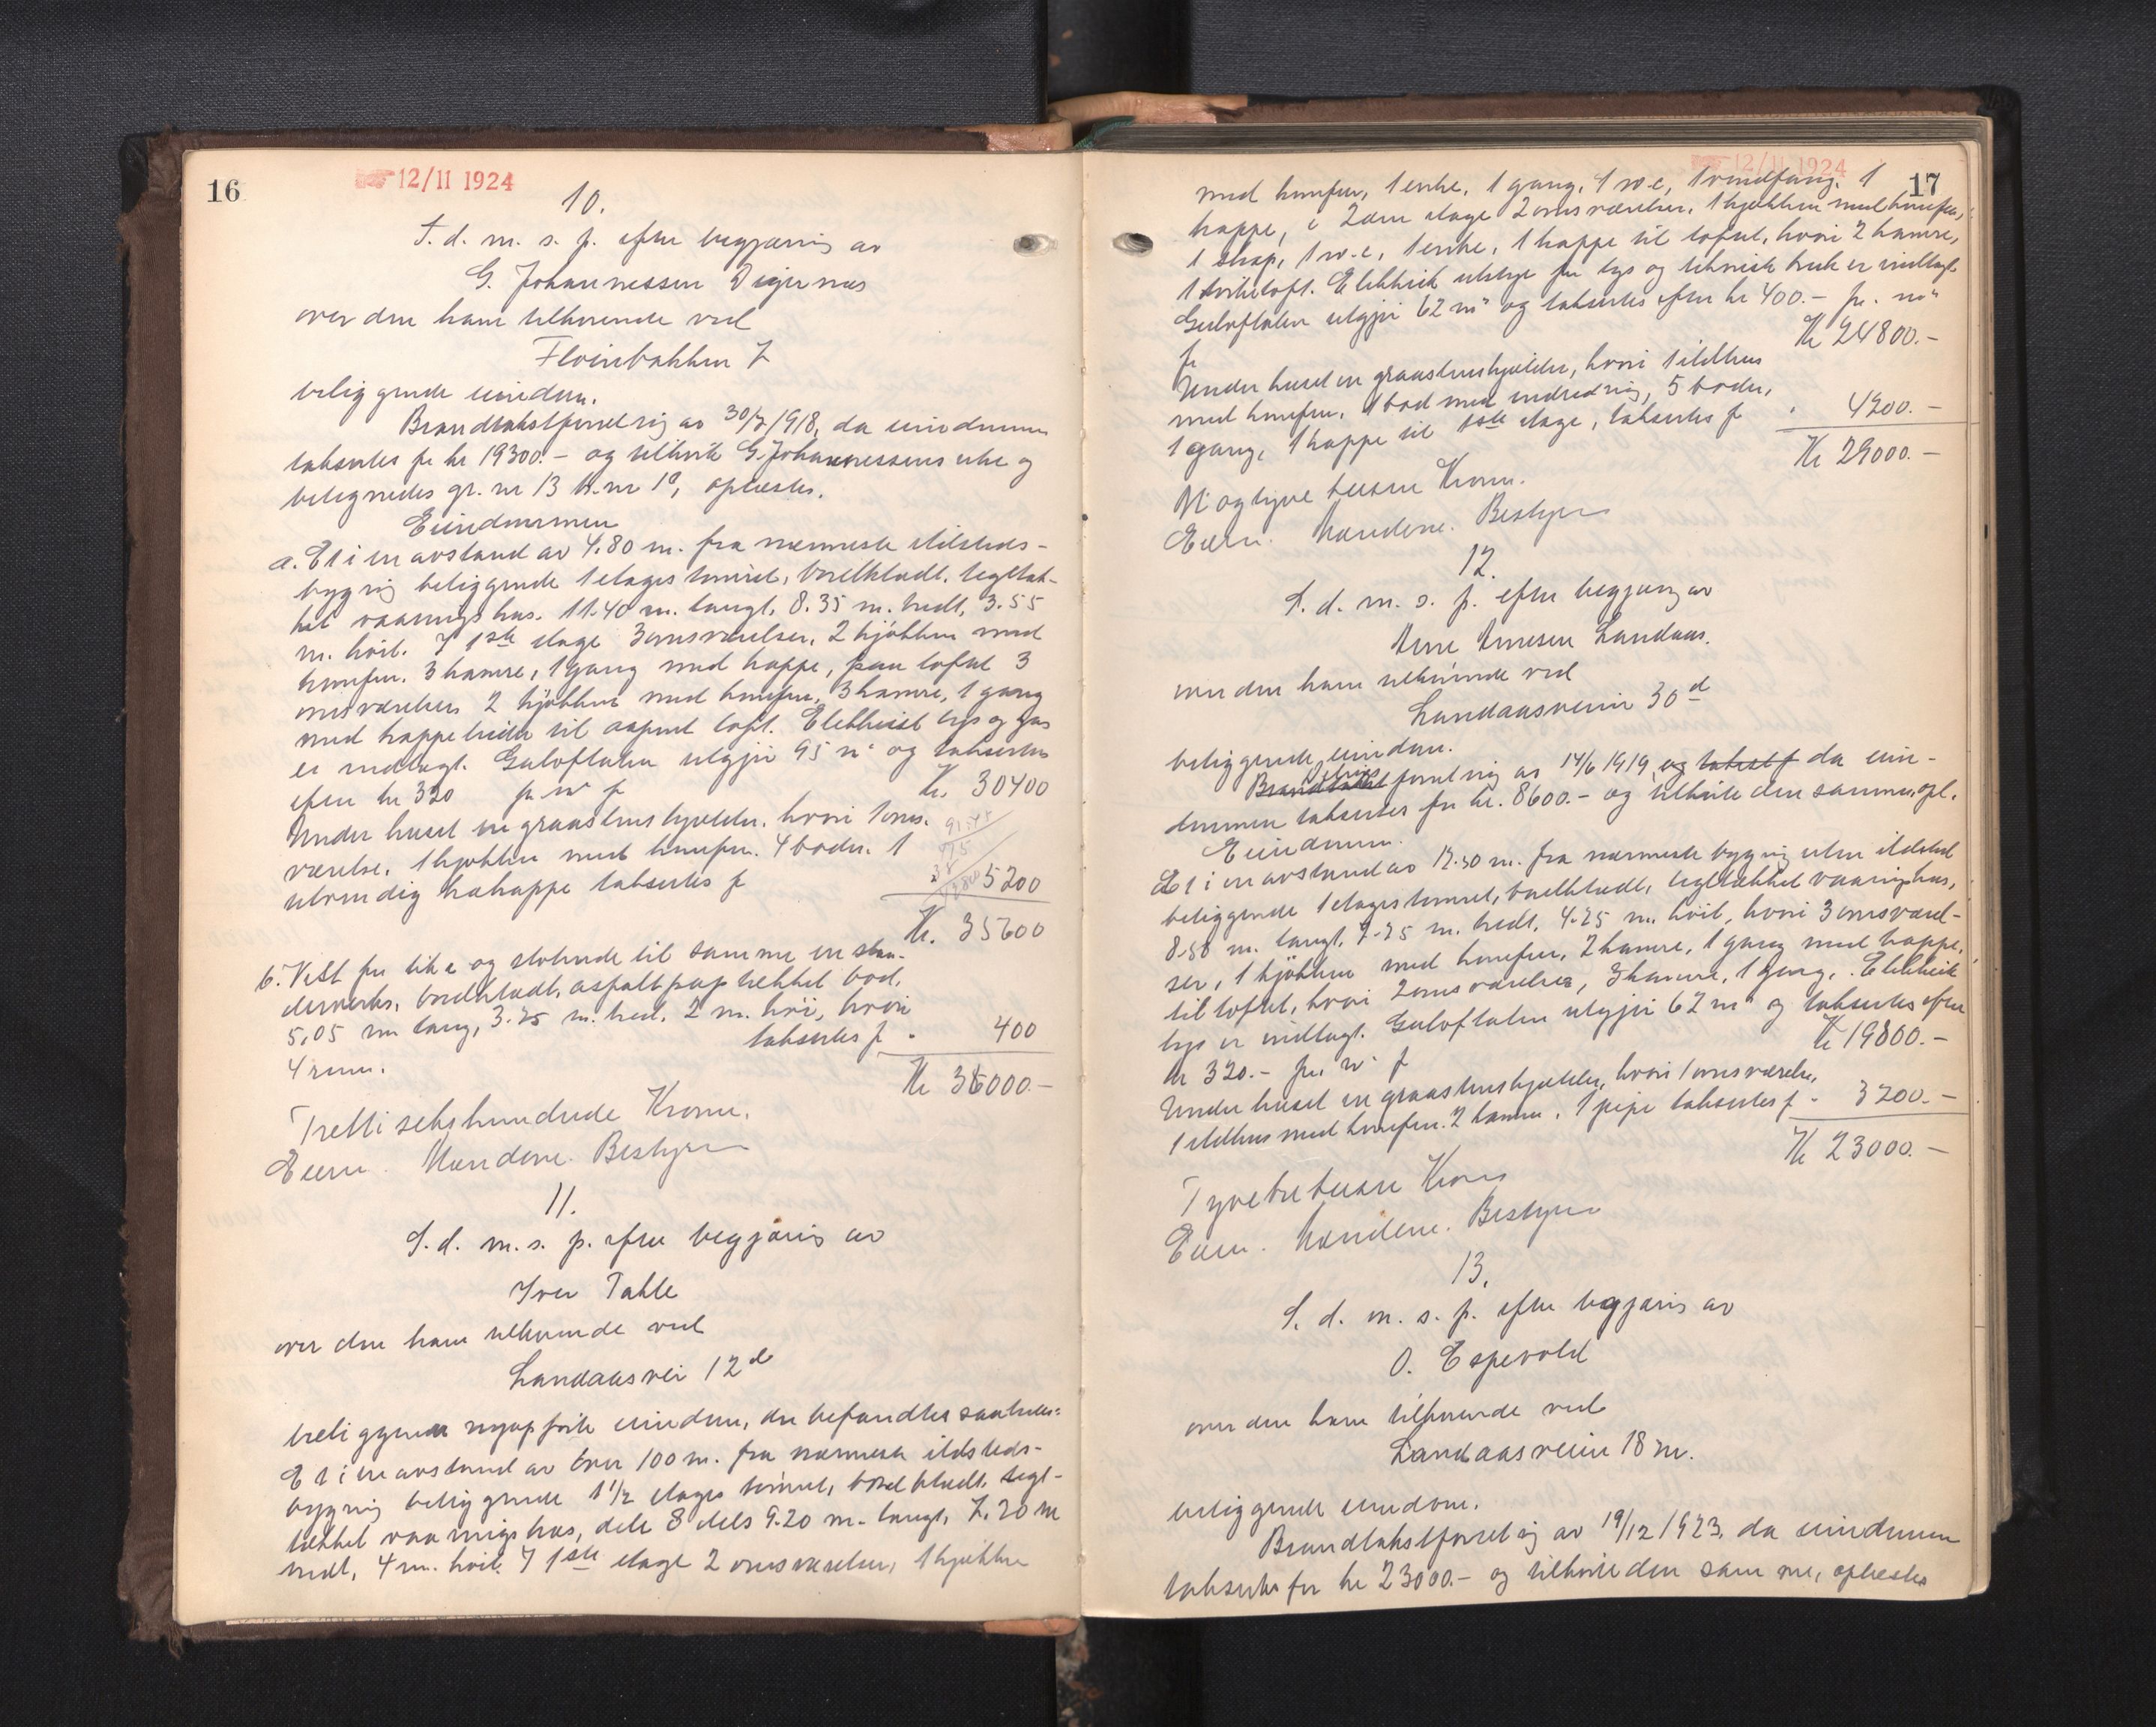 16
12/11 1924
10.
S. d. m. s. p. efter begjæring av
G. Johannessen Digernæs
over den ham tilhørende ved
Fløienbakken 7
beliggende eiendom.
Brandtakstforretnig av 30/7 1918, da eiendommen
taksertes for kr 19300.- og tilhørte G. Johannessens enke og
betegnedes gr. nr 13 br.nr 1a, oplæstes.
Eiendommen
a. Et i en avstand av 4.80 m. fra nærmeste ildsteds-
bygnig beliggende 1 etages tømret, bordklædt, tegltæk-
ket vaanigshus. 11.40 m. langt, 8.35 m. bredt, 3.55
m. høit. I 1ste etage 3 onsværelser, 2 kjøkken med
komfur. 3 kamre, 1 gang med trappe, paa loftet 3
onsværelser 2 kjøkken med komfur, 3 kamre, 1 gang
med trappeleider til aapent loft. Elektrisk lys og gas
er indlagt. Gulvflaten utgjør 95 m² og taksertes
efter kr 320 pr m² f Kr. 30400
Under huset en graastenskjælder, hvori 1 ons.
værelse, 1 kjøkken med komfur. 4 boder. 1
utvendig trætrappe taksertes f 5200
Kr. 35600
b. Vest for litr a og støtende til samme en sten-
derverks, bordklædt, asfaltpap tækket bod,
5,05 m lang, 3.25 m. bred, 2 m. høi, hvori
4 rum. taksertes f " 400
Kr 36000.-
Tretti seks hundrede Kroner.
Eieren. Mændene. Bestyren
11.
S. d. m. s. p. efter begjæring av
Iver Takle
over den ham tilhørende ved
Landaasvei 12d
beliggende nyopførte eiendom, der befandtes saaledes:
Et i en avstand av over 100 m. fra nærmeste ildsteds-
bygnig beliggende 1 1/2 etages tømret, bordklædt, tegl-
tækket vaanigshus, dels 8 dels 9.20 m. langt, 7.20 m
bredt, 4 m. høit. I 1ste etage 2 onsværelser, 1 kjøkken
12/11 1924
17
med komfur, 1 entre, 1 gang, 1 w.c, 1 vindfang. 1
trappe, i 2den etage 2 onsværelser, 1 kjøkken med komfur,
1 skap, 1 w.c, 1 entre, 1 trappe til loftet, hvori 2 kamre,
1 tørkeloft. Elektrisk utstyr for lys og teknisk bruk er indlagt.
Gulvflaten utgjør 62 m² og taksertes efter kr 400.- pr. m²
f Kr 24800.-
Under huset en graastenskjælder, hvori 1 ildhus
med komfur, 1 bod med indredning, 5 boder,
1 gang, 1 trappe til 1ste etage, taksertes f " 4200.-
Kr 29000.-
Ni og tyve tusen Kroner.
Eieren. Mændene. Bestyren
12.
S. d. m. s. p. efter begjæring av
Arne Arnesen Landaas.
over den ham tilhørende ved
Landaasveien 30d
beliggende eiendom.
forretnig av 14/6 1919, og takst f da eien-
dommen taksertes for kr. 8600.- og tilhørte den samme, opl.
Eiendommen.
Et i en avstand av 12.50 m. fra nærmeste bygnig uten ildsted
beliggende 1 etages tømret, bordklædt, teglækket vaanigshus,
8.58 m. langt, 7.25 m. bredt, 4.25 m. høit, hvori 3 onsværel-
ser, 1 kjøkken med komfur, 2 kamre, 1 gang med trappe
til loftet, hvori 2 onsværelser, 3 kamre, 1 gang. Elektrisk
lys er indlagt. Gulvflaten utgjør 62 m² og taksertes efter
kr 320.- pr. m² f Kr 19800.-
Under huset en graastenskjælder, hvori 1 onsværelse,
1 ildhus med komfur. 2 kamre. 1 pipe taksertes f " 3200.-
Kr 23000.-
Tyvetre tusen Kroner
Eieren. Mændene. Bestyren
13.
S. d. m. s. p. efter begjæring av
O. Espevold
over den ham tilhørende ved
Landaasveien 18 m.
beliggende eiendom.
Brandtakstforretnig av 19/12 1923, da eiendommen
taksertes for kr 23000.- og tilhørte den samme, oplæstes